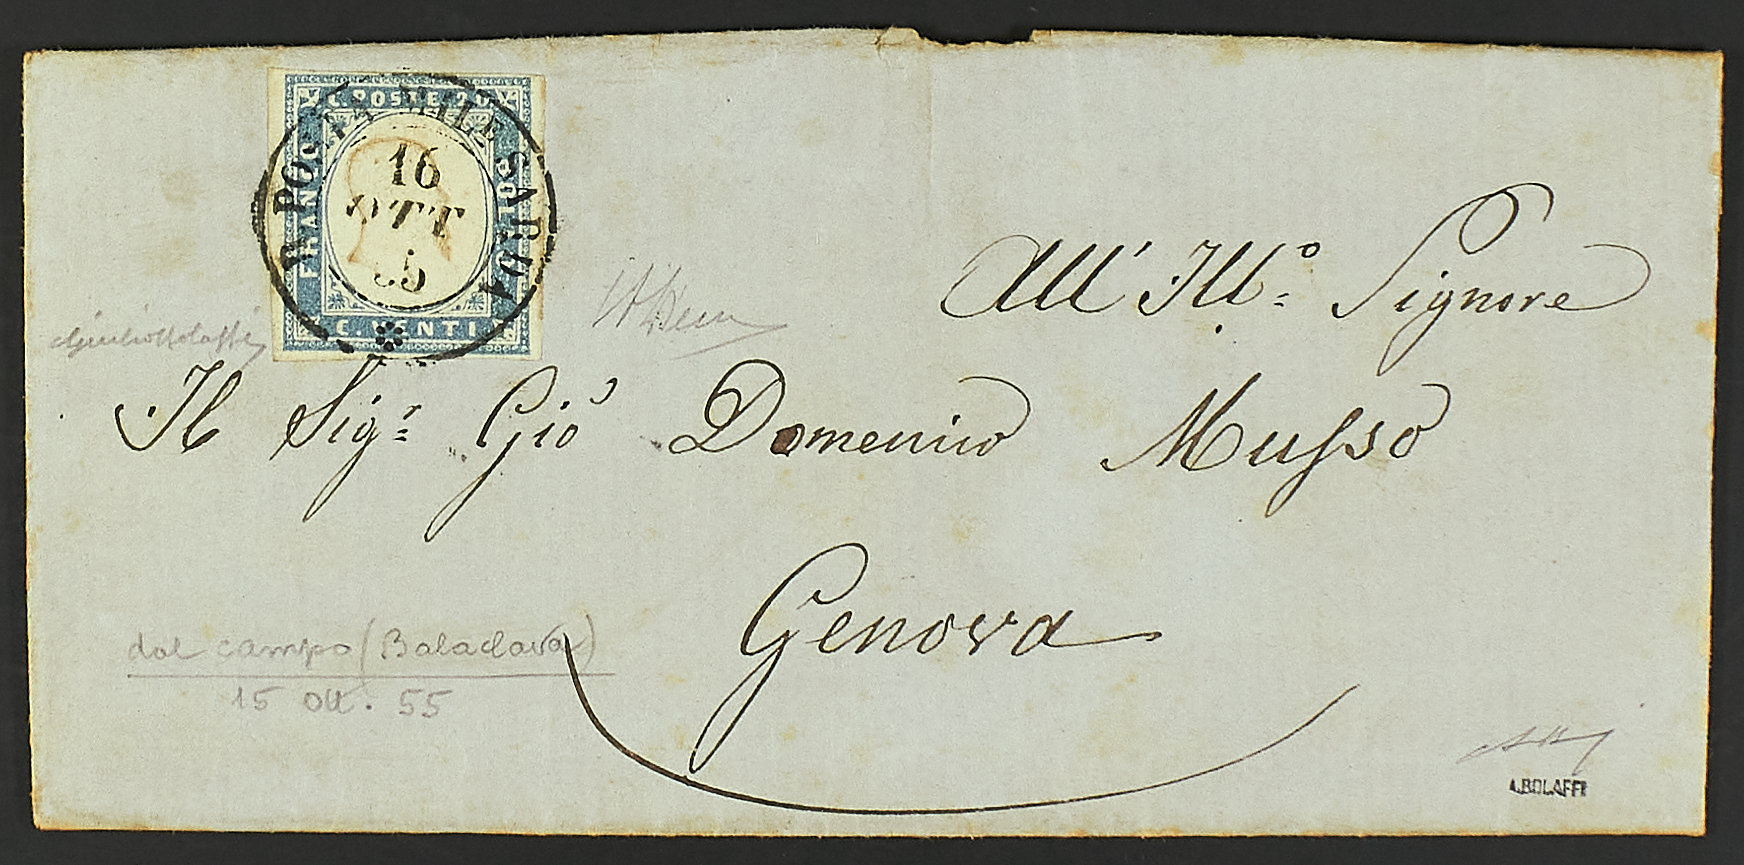 C. POSTE 20
FRANCO
BOLLO
C. VENTI
R. POSTA MILE SARDA
16
OTT
55
All' Ill.º Signore
Il Sig.r Gio Domenico Musso
Genova
dal campo (Balaclava)
15 Ott. 55
A.BOLAFFI